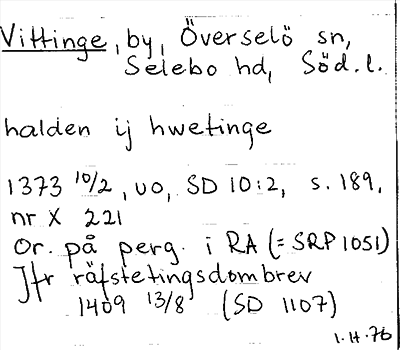 Vittinge, by, Överselö sn,
Selebo hd, Söd.l.
halden ij hwetinge
1373 10/2, uo, SD 10:2, s. 189,
nr X 221
Or. på perg. i RA (= SRP 1051)
Jfr räfstetingsdombrev
1409 13/8 (SD 1107)
1.H.76